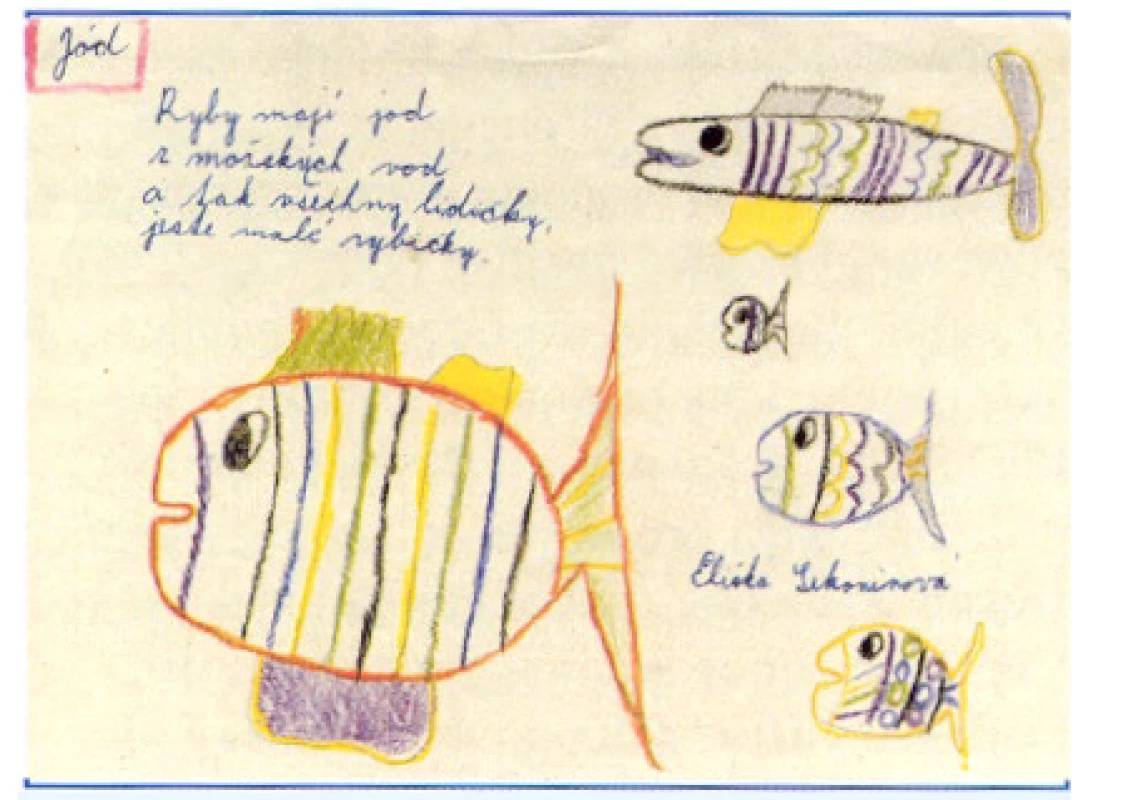 Jód
Ryby mají jod
z mořských vod
a tak všechny lidičky,
jezte malé rybičky.
Eliška